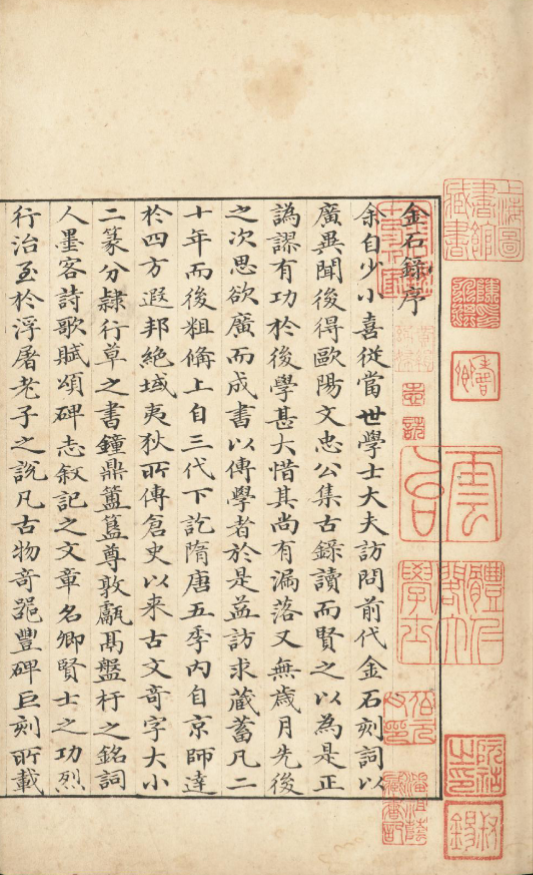 金石錄序
余自少小喜從當世學士大夫訪問前代金石刻詞以
廣異聞後得歐陽文忠公集古錄讀而賢之以為是正
譌謬有功於後學甚大惜其尚有漏落又無歲月先後
之次思欲廣而成書以傳學者於是益訪求藏蓄凡二
十年而後粗備上自三代下訖隋唐五季內自京師達
於四方遐邦絕域夷狄所傳倉史以来古文奇字大小
二篆分隷行草之書鐘鼎簠簋尊敦甗鬲盤杅之銘詞
人墨客詩歌賦頌碑志敘記之文章名卿賢士之功烈
行治至於浮屠老子之說凡古物奇器豐碑巨刻所載
上海圖書館藏書
雲臺
體仁閣大學士
伯元父印
阮元之印